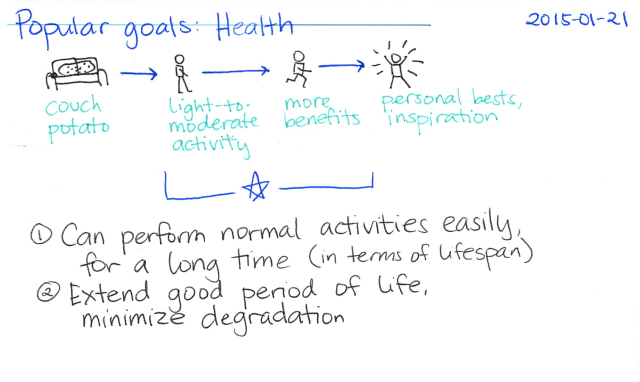 Popular goals: Health
2015-01-21
couch potato
light-to-moderate activity
more benefits
personal bests, inspiration
① Can perform normal activities easily,
for a long time (in terms of lifespan)
② Extend good period of life,
minimize degradation